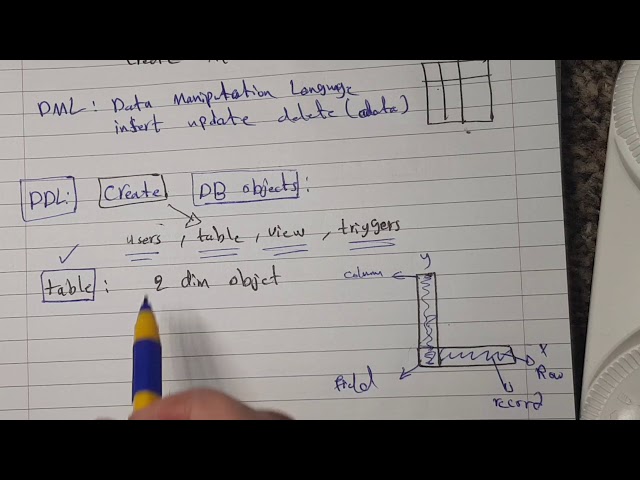 Create
DML: Data Manipulation Language
insert update delete (data)
DDL: Create DB objects:
users, table, view, triggers
table: 2 dim objct
y
column
x
Row
field
record